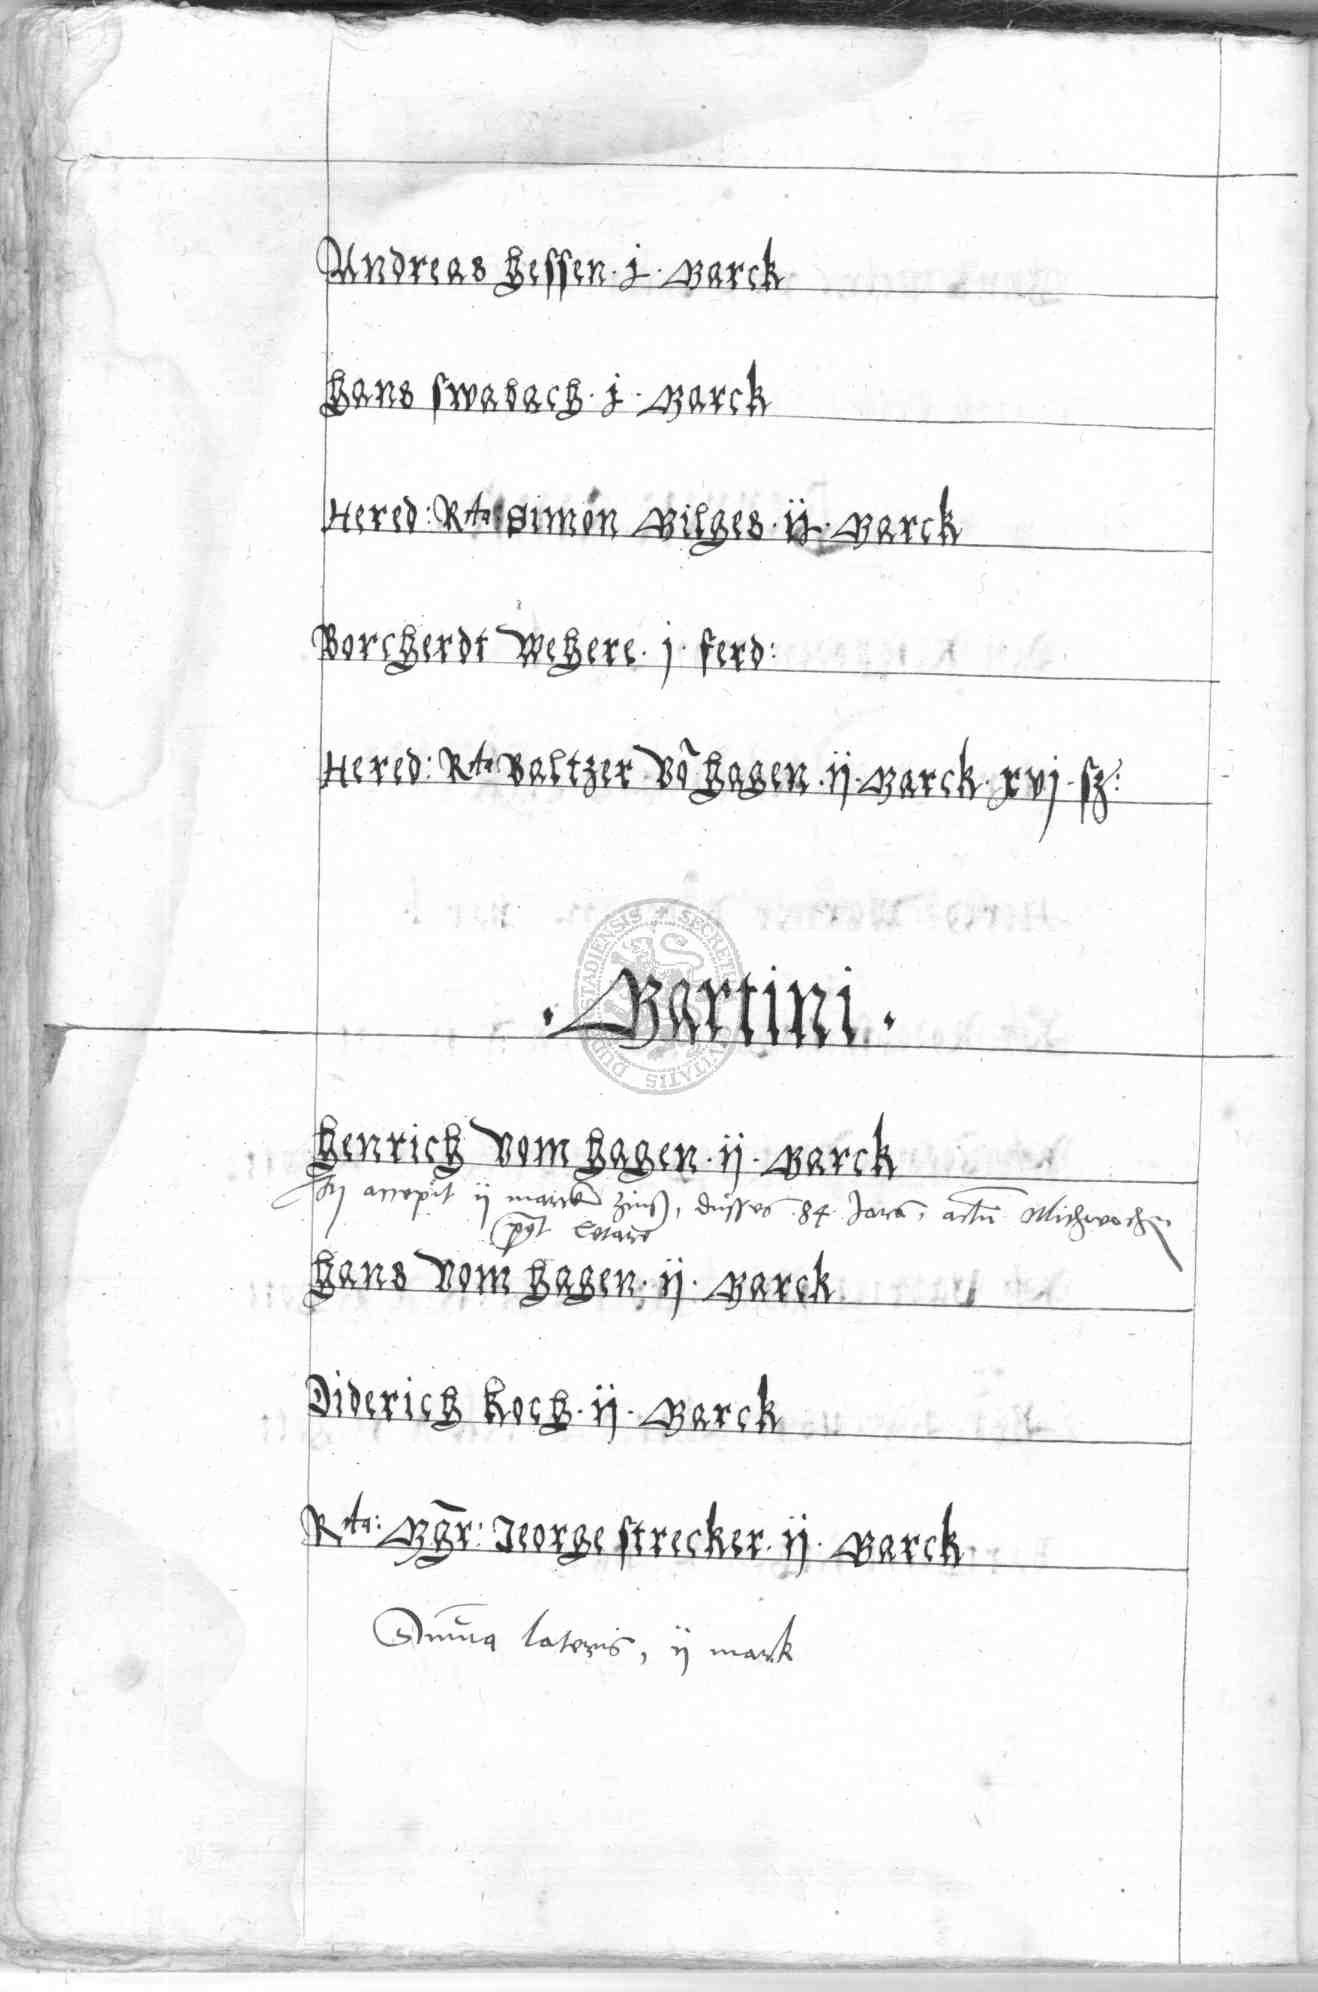 Andreas Hessen · j · Marck
Hans Swabach · j · Marck
Hered: Rta: Simon Hilges · ij · Marck
Borcherdt Wehere · j · ferd:
Hered: Rta Baltzer Vō Hagen · ij · Marck · xvj · sz:
· Martini ·
Henrich Vom Hagen · ij · Marck
accepit ij marck zinß, dusses 84 Jars, actū Mitzwochen
Letare
Hans Vom Hagen · ij · Marck
Diderich Koch · ij · Marck
Rta: Mgr: Jeorge Strecker · ij · Marck
Suma lateris, ij mark
SECRETU CIVITATIS DUDERSTADIENSIS